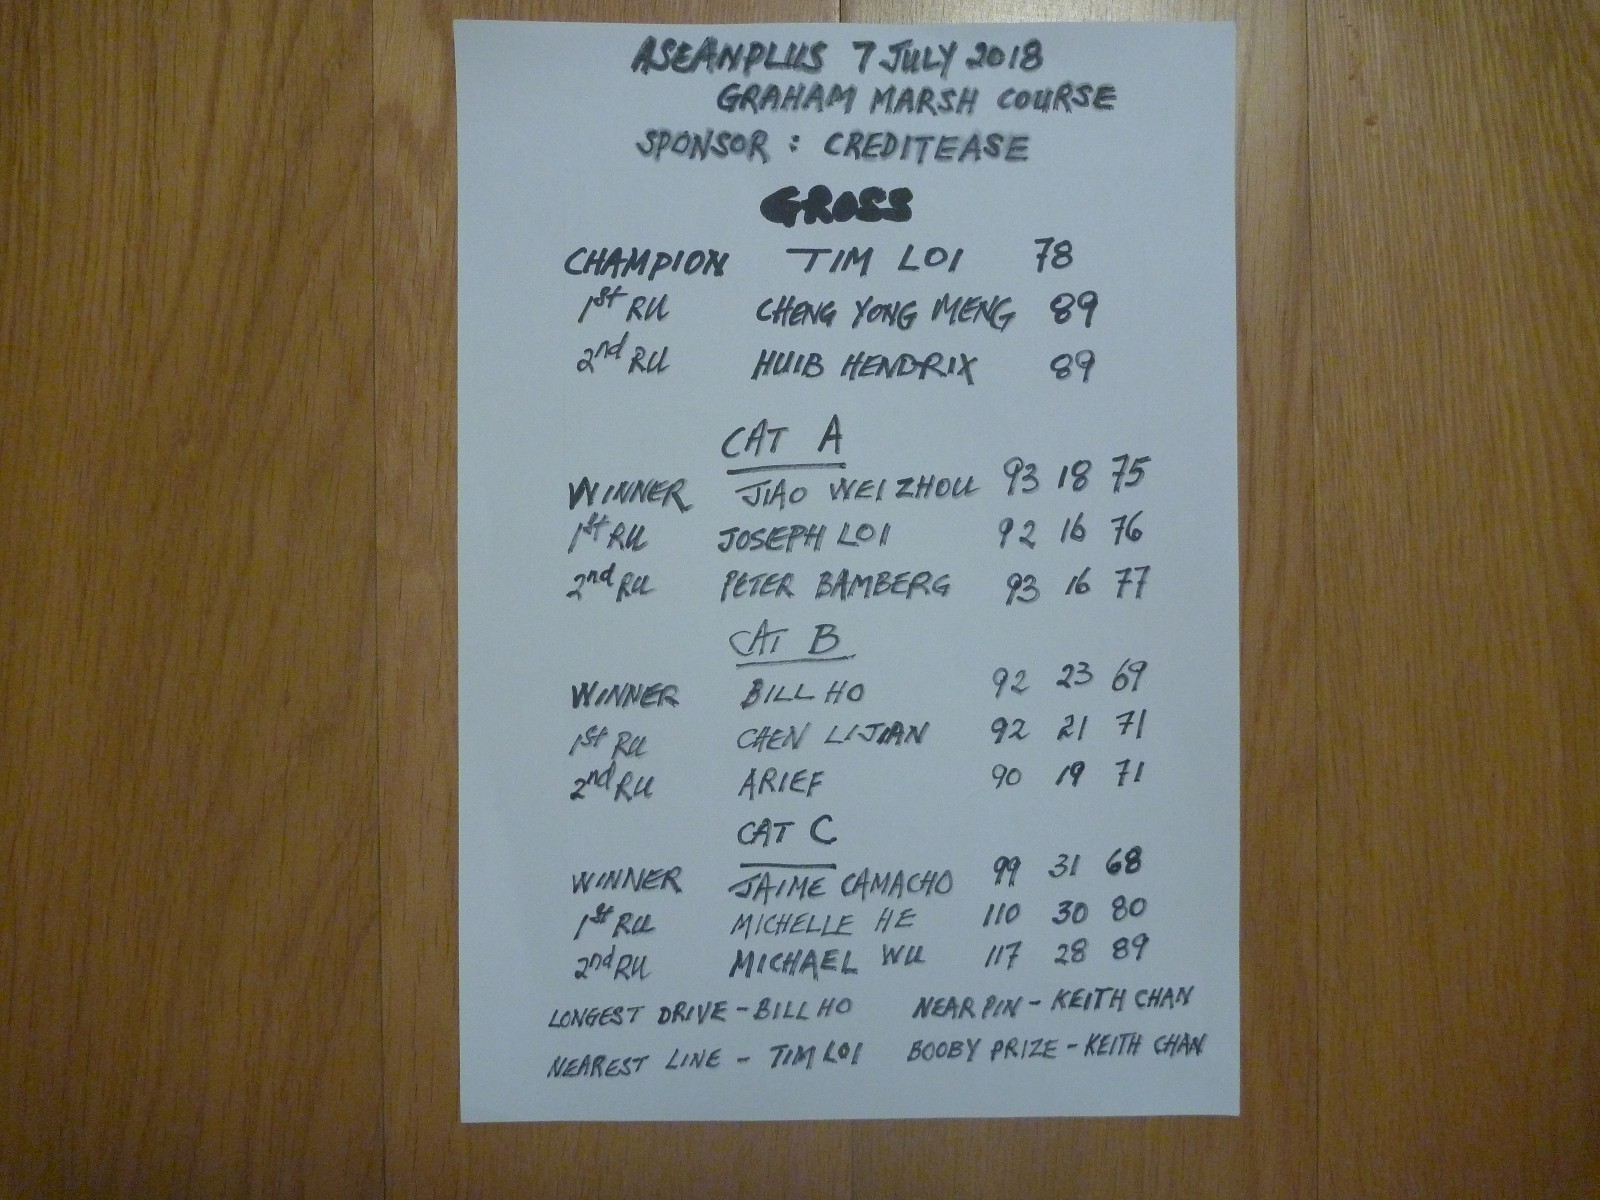 ASEANPLUS 7 JULY 2018
GRAHAM MARSH COURSE
SPONSOR : CREDITEASE
GROSS
CHAMPION TIM LOI 78
1st RU CHENG YONG MENG 89
2nd RU HUIB HENDRIX 89
CAT A
WINNER JIAO WEI ZHOU 93 18 75
1st RU JOSEPH LOI 92 16 76
2nd RU PETER BAMBERG 93 16 77
CAT B
WINNER BILL HO 92 23 69
1st RU CHEN LIJIAN 92 21 71
2nd RU ARIEF 90 19 71
CAT C
WINNER JAIME CAMACHO 99 31 68
1st RU MICHELLE HE 110 30 80
2nd RU MICHAEL WU 117 28 89
LONGEST DRIVE - BILL HO NEAR PIN - KEITH CHAN
NEAREST LINE - TIM LOI BOOBY PRIZE - KEITH CHAN